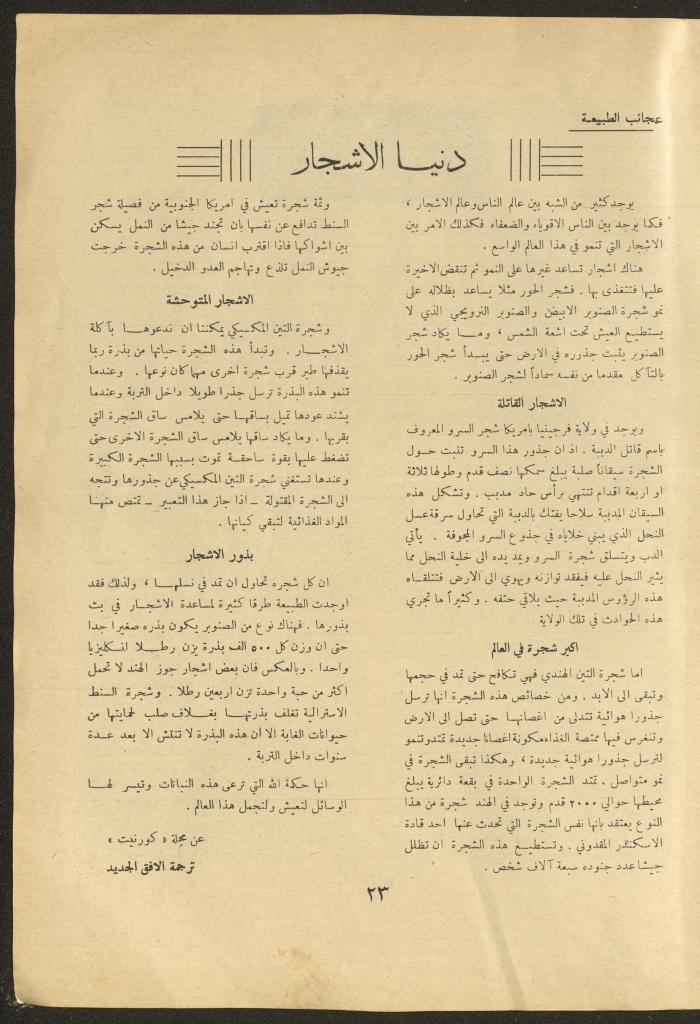 عجائب الطبيعة
دنيا الاشجار
يوجد كثير من الشبه بين عالم الناس وعالم الاشجار ،
فكما يوجد بين الناس الاقوياء والضعفاء فكذلك الامر بين
الاشجار التي تنمو في هذا العالم الواسع .
هناك اشجار تساعد غيرها على النمو ثم تنقض الاخيرة
عليها فتتغذى بها . فشجر الحور مثلا يساعد بظلاله على
نمو شجرة الصنوبر الابيض والصنوبر النرويجي الذي لا
يستطيع العيش تحت اشعة الشمس ، وما يكاد شجر
الصنوبر يثبت جذوره في الارض حتى يبدأ شجر الحور
بالتآكل مقدما من نفسه سماداً لشجر الصنوبر .
الاشجار القاتلة
ويوجد في ولاية فرجينيا بامريكا شجر السرو المعروف
باسم قاتل الدببة . اذ ان جذور هذا السرو تنبت حول
الشجرة سيقاناً صلبة يبلغ سمكها نصف قدم وطولها ثلاثة
او اربعة اقدام تنتهي برأس حاد مدبب . وتشكل هذه
السيقان المدببة سلاحا يفتك بالدببة التي تحاول سرقة عسل
النحل الذي يبني خلاياه في جذوع السرو المجوفة . يأتي
الدب ويتسلق شجرة السرو ويمد يده الى خلية النحل مما
يثير النحل عليه فيفقد توازنه ويهوي الى الارض فتتلقاه
هذه الرؤوس المدببة حيث يلاقي حتفه . وكثيراً ما تجري
هذه الحوادث في تلك الولاية .
اكبر شجرة في العالم
اما شجرة التين الهندي فهي تكافح حتى تمد في حجمها
وتبقى الى الابد . ومن خصائص هذه الشجرة انها ترسل
جذورا هوائية تتدلى من اغصانها حتى تصل الى الارض
وتنغرس فيها ممتصة الغذاء مكونة اغصانا جديدة تمتد وتنمو
لترسل جذورا هوائية جديدة ، وهكذا تبقى الشجرة في
نمو متواصل . تمتد الشجرة الواحدة في بقعة دائرية يبلغ
محيطها حوالي ٢٠٠٠ قدم وتوجد في الهند شجرة من هذا
النوع يعتقد بانها نفس الشجرة التي تحدث عنها احد قادة
الاسكندر المقدوني . وتستطيع هذه الشجرة ان تظلل
جيشا عدد جنوده سبعة آلاف شخص .
وثمة شجرة تعيش في امريكا الجنوبية من فصيلة شجر
السنط تدافع عن نفسها بان تجند جيشا من النمل يسكن
بين اشواكها فاذا اقترب انسان من هذه الشجرة خرجت
جيوش النمل تلذع وتهاجم العدو الدخيل .
الاشجار المتوحشة
وشجرة التين المكسيكي يمكننا ان ندعوها بآكلة
الاشجار . وتبدأ هذه الشجرة حياتها من بذرة ربما
يقذفها طير قرب شجرة اخرى مهما كان نوعها . وعندما
تنمو هذه البذرة ترسل جذرا طويلا داخل التربة وعندما
يشتد عودها تميل بساقها حتى يلامس ساق الشجرة التي
بقربها . وما يكاد ساقها يلامس ساق الشجرة الاخرى حتى
تضغط عليها بقوة ساحقة تموت بسببها الشجرة الكبيرة
وعندها تستغني شجرة التين المكسيكي عن جذورها وتتجه
الى الشجرة المقتولة – اذا جاز هذا التعبير – تمتص منها
المواد الغذائية لتبقي كيانها .
بذور الاشجار
ان كل شجره تحاول ان تمد في نسلها ، ولذلك فقد
اوجدت الطبيعة طرقا كثيرة لمساعدة الاشجار في بث
بذورها . فهناك نوع من الصنوبر يكون بذره صغيرا جدا
حتى ان وزن كل ٥٠٠ الف بذرة يزن رطلا انكليزيا
واحدا . وبالعكس فان بعض اشجار جوز الهند لا تحمل
اكثر من حبة واحدة تزن اربعين رطلا . وشجرة السنط
الاسترالية تغلف بذرتها بغلاف صلب لحمايتها من
حيوانات الغابة الا أن هذه البذرة لا تنتش الا بعد عدة
سنوات داخل التربة .
انها حكمة الله التي ترعى هذه النباتات وتيسر لها
الوسائل لتعيش ولتجمل هذا العالم .
عن مجلة « كورنيت »
ترجمة الافق الجديد
٢٣